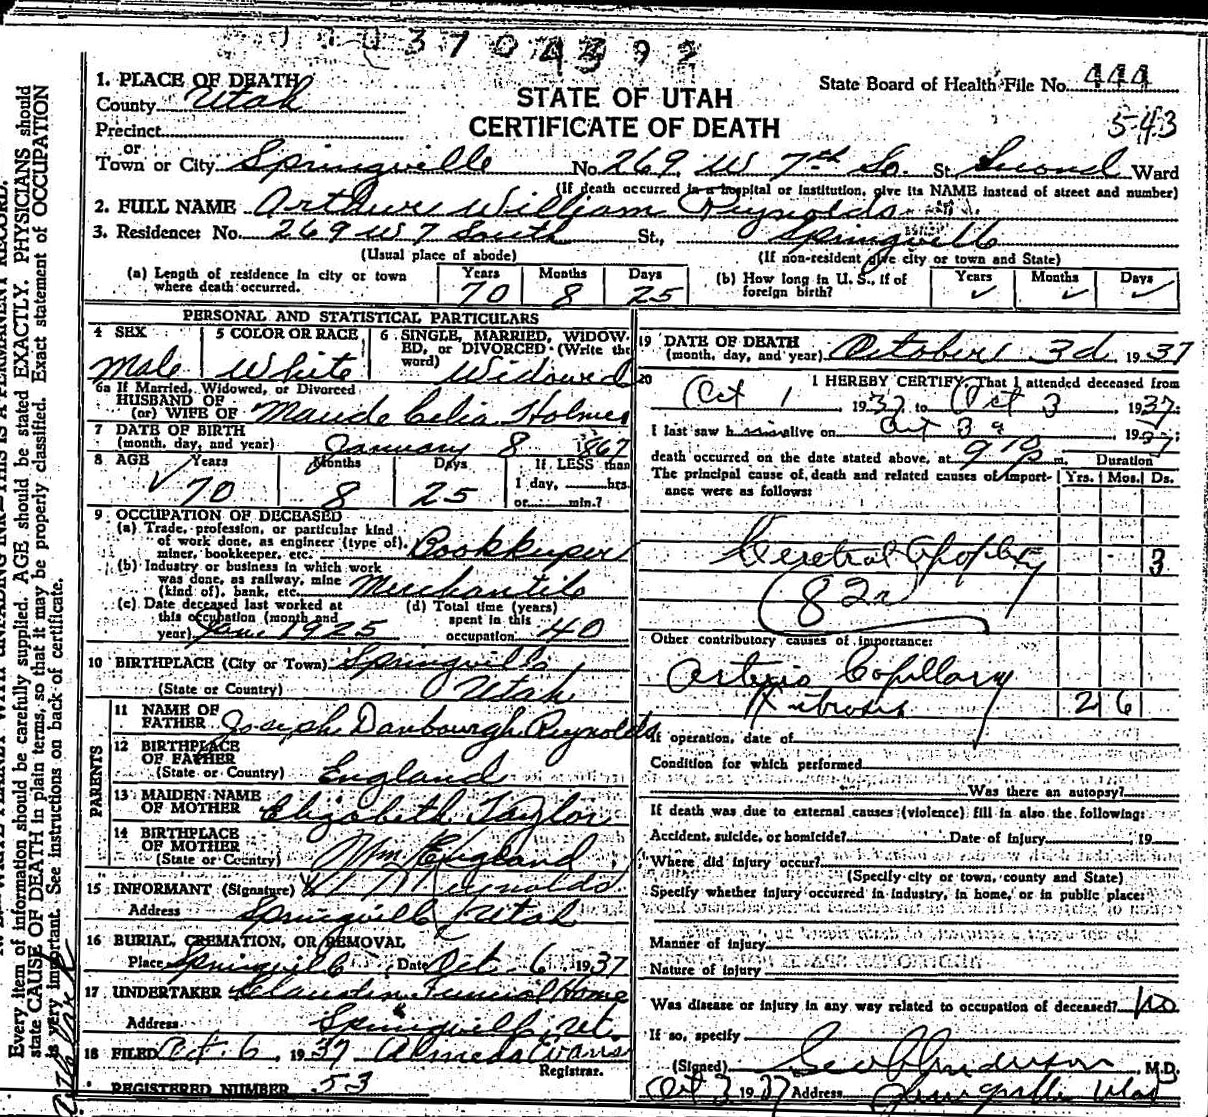 3704392
1. PLACE OF DEATH
County Utah
State Board of Health File No. 444
STATE OF UTAH
CERTIFICATE OF DEATH
543
Precinct
or
Town or City Springville No. 269 W 7th So. St. Second Ward
(If death occurred in a hospital or institution, give its NAME instead of street and number)
2. FULL NAME Arthur William Reynolds
3. Residence: No. 269 W 7 South St., Springville
(Usual place of abode) (If non-resident give city or town and State)
(a) Length of residence in city or town where death occurred. Years 70 Months 8 Days 25 (b) How long in U. S., if of foreign birth? Years ✓ Months ✓ Days ✓
PERSONAL AND STATISTICAL PARTICULARS
4 SEX Male 5 COLOR OR RACE White 6 SINGLE, MARRIED, WIDOWED, or DIVORCED (Write the word) Widowed
6a If Married, Widowed, or Divorced
HUSBAND OF
(or) WIFE OF Maude Celia Holmes
7 DATE OF BIRTH
(month, day, and year) January 8 1867
8 AGE Years 70 Months 8 Days 25 If LESS than
1 day, hrs.
or min.?
9 OCCUPATION OF DECEASED
(a) Trade, profession, or particular kind
of work done, as engineer (type of),
miner, bookkeeper, etc. Bookkeeper
(b) Industry or business in which work
was done, as railway, mine
(kind of), bank, etc. Merchantile
(c) Date deceased last worked at
this occupation (month and
year) June 1925
(d) Total time (years)
spent in this
occupation 40
10 BIRTHPLACE (City or Town) Springville
(State or Country) Utah
PARENTS
11 NAME OF
FATHER Joseph Danbourgh Reynolds
12 BIRTHPLACE
OF FATHER
(State or Country) England
13 MAIDEN NAME
OF MOTHER Elizabeth Taylor
14 BIRTHPLACE
OF MOTHER
(State or Country) England
15 INFORMANT (Signature) Reynolds
Address Springville Utah
16 BURIAL, CREMATION, OR REMOVAL
Place Springville Date Oct. 6 1937
17 UNDERTAKER Funeral Home
Address Springville, Ut.
18 FILED Oct. 6, 1937 Almeda Evans
Registrar.
REGISTERED NUMBER 53
19 DATE OF DEATH
(month, day, and year) October 3d 1937
20 I HEREBY CERTIFY, That I attended deceased from
Oct 1, 1937, to Oct 3, 1937:
I last saw him alive on Oct 3d, 1937;
death occurred on the date stated above, at 9 p m. Duration
The principal cause of death and related causes of importance were as follows: Yrs. Mos. Ds.
Cerebral Apoplexy 3
82a
Other contributory causes of importance:
Arterio Capillary
Fibrosis 2 6
If operation, date of
Condition for which performed
Was there an autopsy?
If death was due to external causes (violence) fill in also the following:
Accident, suicide, or homicide? Date of injury , 19
Where did injury occur?
(Specify city or town, county and State)
Specify whether injury occurred in industry, in home, or in public place:
Manner of injury
Nature of injury
Was disease or injury in any way related to occupation of deceased? No
If so, specify
(Signed) Geo Anderson, M.D.
Oct 3 1937 Address Springville Utah
Every item of information should be carefully supplied. AGE should be stated EXACTLY. PHYSICIANS should
state CAUSE OF DEATH in plain terms, so that it may be properly classified. Exact statement of OCCUPATION
is very important. See instructions on back of certificate.